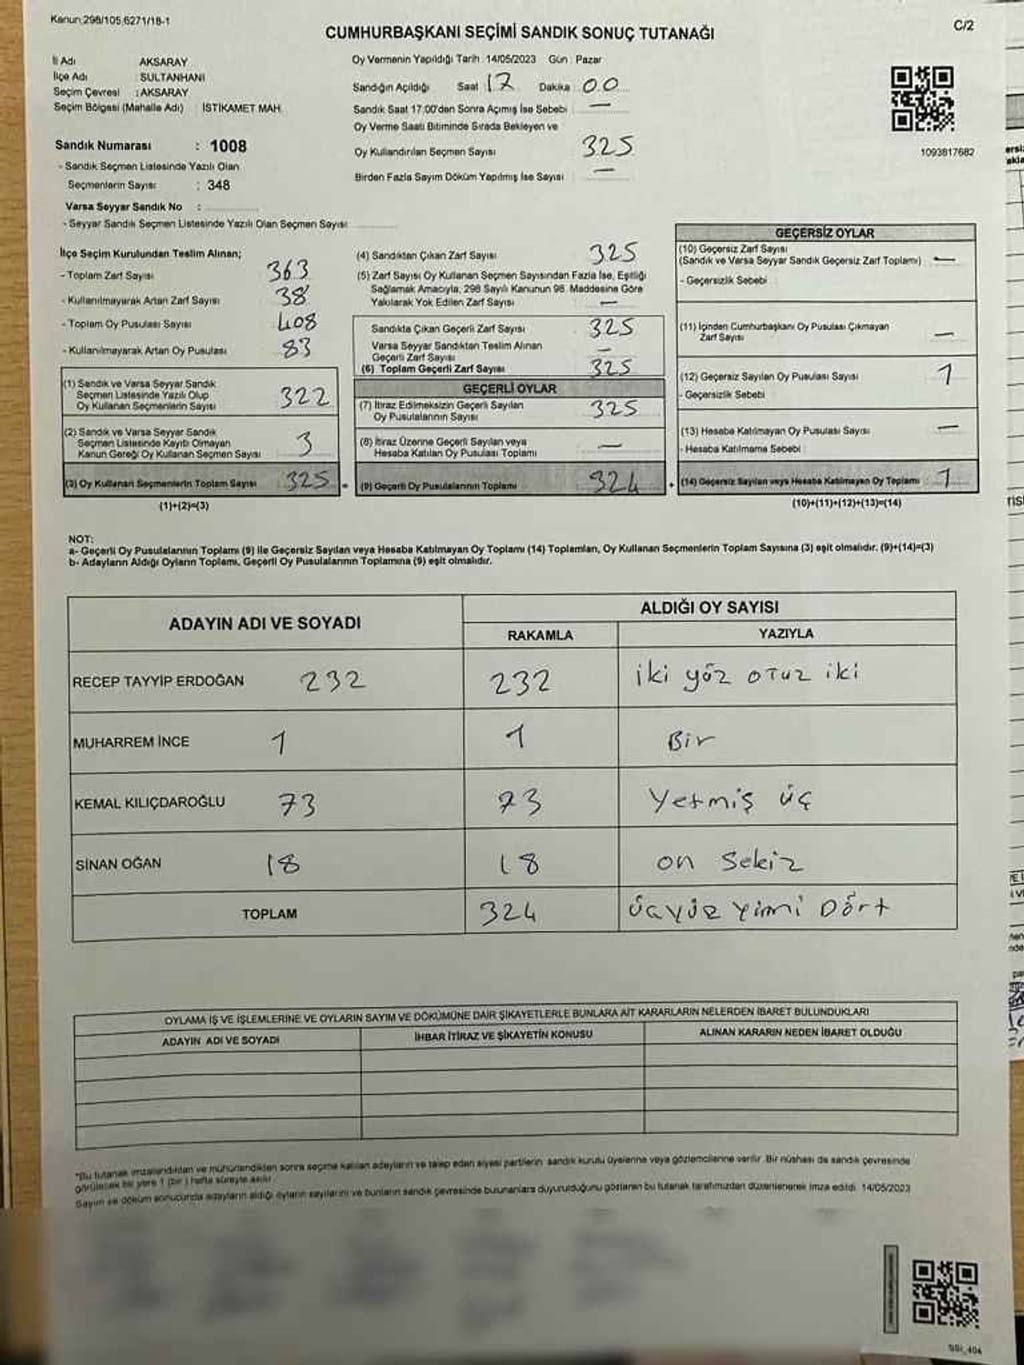 Kanun;298/105,6271/18-1
C/2
CUMHURBAŞKANI SEÇİMİ SANDIK SONUÇ TUTANAĞI
İl Adı AKSARAY
İlçe Adı : SULTANHANI
Seçim Çevresi : AKSARAY
Seçim Bölgesi (Mahalle Adı) İSTİKAMET MAH.
Sandık Numarası : 1008
- Sandık Seçmen Listesinde Yazılı Olan
Seçmenlerin Sayısı : 348
Varsa Seyyar Sandık No :
- Seyyar Sandık Seçmen Listesinde Yazılı Olan Seçmen Sayısı
Oy Vermenin Yapıldığı Tarih : 14/05/2023 Gün : Pazar
Sandığın Açıldığı Saat 17 Dakika 00
Sandık Saat 17:00'den Sonra Açılmış İse Sebebi : —
Oy Verme Saati Bitiminde Sırada Bekleyen ve
Oy Kullandırılan Seçmen Sayısı 325
Birden Fazla Sayım Döküm Yapılmış İse Sayısı : —
1093817682
İlçe Seçim Kurulundan Teslim Alınan;
- Toplam Zarf Sayısı 363
- Kullanılmayarak Artan Zarf Sayısı 38
- Toplam Oy Pusulası Sayısı 408
- Kullanılmayarak Artan Oy Pusulası 83
(1) Sandık ve Varsa Seyyar Sandık
Seçmen Listesinde Yazılı Olup
Oy Kullanan Seçmenlerin Sayısı 322
(2) Sandık ve Varsa Seyyar Sandık
Seçmen Listesinde Kayıtlı Olmayan
Kanun Gereği Oy Kullanan Seçmen Sayısı 3
(3) Oy Kullanan Seçmenlerin Toplam Sayısı 325 =
(1)+(2)=(3)
(4) Sandıktan Çıkan Zarf Sayısı 325
(5) Zarf Sayısı Oy Kullanan Seçmen Sayısından Fazla İse, Eşitliği
Sağlamak Amacıyla, 298 Sayılı Kanunun 98. Maddesine Göre
Yakılarak Yok Edilen Zarf Sayısı —
Sandıkta Çıkan Geçerli Zarf Sayısı 325
Varsa Seyyar Sandıktan Teslim Alınan
Geçerli Zarf Sayısı —
(6) Toplam Geçerli Zarf Sayısı 325
GEÇERLİ OYLAR
(7) İtiraz Edilmeksizin Geçerli Sayılan
Oy Pusulalarının Sayısı 325
(8) İtiraz Üzerine Geçerli Sayılan veya
Hesaba Katılan Oy Pusulası Toplamı —
(9) Geçerli Oy Pusulalarının Toplamı 324 +
GEÇERSİZ OYLAR
(10) Geçersiz Zarf Sayısı
(Sandık ve Varsa Seyyar Sandık Geçersiz Zarf Toplamı) —
- Geçersizlik Sebebi :
(11) İçinden Cumhurbaşkanı Oy Pusulası Çıkmayan
Zarf Sayısı —
(12) Geçersiz Sayılan Oy Pusulası Sayısı 1
- Geçersizlik Sebebi
(13) Hesaba Katılmayan Oy Pusulası Sayısı —
- Hesaba Katılmama Sebebi
(14) Geçersiz Sayılan veya Hesaba Katılmayan Oy Toplamı 1
(10)+(11)+(12)+(13)=(14)
NOT:
a- Geçerli Oy Pusulalarının Toplamı (9) ile Geçersiz Sayılan veya Hesaba Katılmayan Oy Toplamı (14) Toplamları, Oy Kullanan Seçmenlerin Toplam Sayısına (3) eşit olmalıdır. (9)+(14)=(3)
b- Adayların Aldığı Oyların Toplamı, Geçerli Oy Pusulalarının Toplamına (9) eşit olmalıdır.
ADAYIN ADI VE SOYADI
ALDIĞI OY SAYISI
RAKAMLA YAZIYLA
RECEP TAYYİP ERDOĞAN 232 232 iki yöz otuz iki
MUHARREM İNCE 1 1 Bir
KEMAL KILIÇDAROĞLU 73 73 Yetmiş üç
SİNAN OĞAN 18 18 on sekiz
TOPLAM 324 üçyüz yirmi Dört
OYLAMA İŞ VE İŞLEMLERİNE VE OYLARIN SAYIM VE DÖKÜMÜNE DAİR ŞİKAYETLERLE BUNLARA AİT KARARLARIN NELERDEN İBARET BULUNDUKLARI
ADAYIN ADI VE SOYADI İHBAR İTİRAZ VE ŞİKAYETİN KONUSU ALINAN KARARIN NEDEN İBARET OLDUĞU
*Bu tutanak imzalandıktan ve mühürlendikten sonra seçime katılan adayların ve talep eden siyasi partilerin sandık kurulu üyelerine veya gözlemcilerine verilir. Bir nüshası da sandık çevresinde
görülecek bir yere 1 (bir) hafta süreyle asılır.
Sayım ve döküm sonucunda adayların aldığı oyların sayılarını ve bunların sandık çevresinde bulunanlara duyurulduğunu gösteren bu tutanak tarafımızdan düzenlenerek imza edildi. 14/05/2023